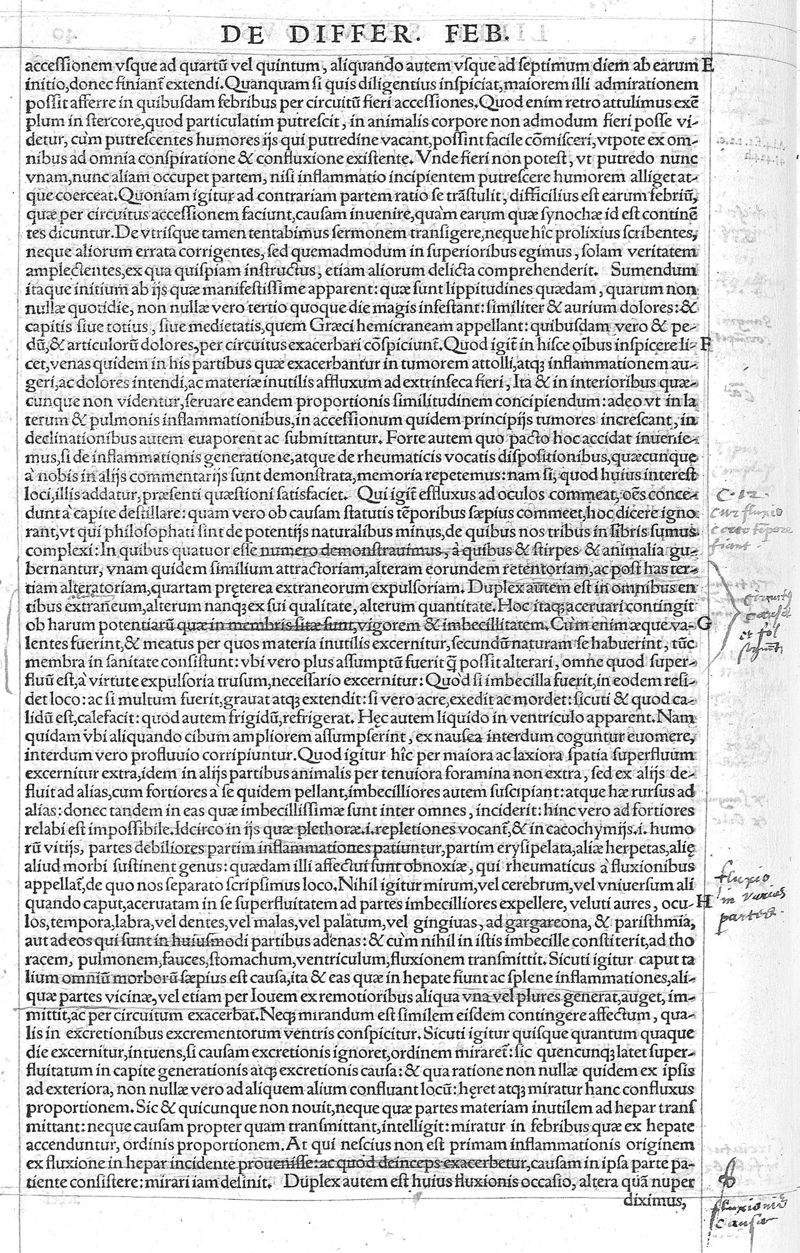 DE DIFFER. FEB.
accessionem vsque ad quartũ vel quintum, aliquando autem vsque ad septimum diem ab earum E
initio, donec finiant̃ extendi. Quanquam si quis diligentius inspiciat, maiorem illi admirationem
possit afferre in quibusdam febribus per circuitũ fieri accessiones. Quod enim retro attulimus exẽ
plum in stercore, quod particulatim putrescit, in animalis corpore non admodum fieri posse vi-
detur, cùm putrescentes humores ijs qui putredine vacant, possint facile cõmisceri, vtpote ex om-
nibus ad omnia conspiratione & confluxione existente. Vnde fieri non potest, vt putredo nunc
vnam, nunc aliam occupet partem, nisi inflammatio incipientem putrescere humorem alliget at-
que coerceat. Quoniam igitur ad contrariam partem ratio se trãstulit, difficilius est earum febriũ,
quæ per circuitus accessionem faciunt, causam inuenire, quàm earum quæ synochæ id est continẽ
tes dicuntur. De vtrisque tamen tentabimus sermonem transigere, neque hîc prolixius scribentes,
neque aliorum errata corrigentes, sed quemadmodum in superioribus egimus, solam veritatem
amplectentes, ex qua quispiam instructus, etiam aliorum delicta comprehenderit. Sumendum
itaque initium ab ijs quæ manifestissime apparent: quæ sunt lippitudines quædam, quarum non
nullæ quotidie, non nullæ vero tertio quoque die magis infestant: similiter & aurium dolores: &
capitis siue totius, siue medietatis, quem Græci hemicraneam appellant: quibusdam vero & pe-
dũ, & articulorũ dolores, per circuitus exacerbari cõspiciunt̃. Quod igit̃ in hisce oĩbus inspicere li- F
cet, venas quidem in his partibus quæ exacerbantur in tumorem attolli, atq; inflammationem au-
geri, ac dolores intendi, ac materiæ inutilis affluxum ad extrinseca fieri, Ita & in interioribus quæ-
cunque non videntur, seruare eandem proportionis similitudinem concipiendum: adeo vt in la
terum & pulmonis inflammationibus, in accessionum quidem principijs tumores increscant, in
declinationibus autem euaporent ac submittantur. Forte autem quo pacto hoc accidat inuenie-
mus, si de inflammationis generatione, atque de rheumaticis vocatis dispositionibus, quæcunque
à nobis in alijs commentarijs sunt demonstrata, memoria repetemus: nam si, quod huius interest
loci, illis addatur, præsenti quæstioni satisfaciet. Qui igit̃ effluxus ad oculos commeat, oẽs conce-
dunt à capite destillare: quam vero ob causam statutis tẽporibus sæpius commeet, hoc dicere igno
rant, vt qui philosophati sint de potentijs naturalibus minus, de quibus nos tribus in libris sumus
complexi: In quibus quatuor esse numero demonstrauimus, à quibus & stirpes & animalia gu-
bernantur, vnam quidem similium attractoriam, alteram eorundem retentoriam, ac post has ter-
tiam alteratoriam, quartam pręterea extraneorum expulsoriam. Duplex autem est in omnibus en
tibus extraneum, alterum nanq; ex sui qualitate, alterum quantitate. Hoc itaq; aceruari contingit
ob harum potentiarũ quæ in membris sitæ sunt, vigorem & imbecillitatem. Cùm enim æque va- G
lentes fuerint, & meatus per quos materia inutilis excernitur, secundũ naturam se habuerint, tũc
membra in sanitate consistunt: vbi vero plus assumptũ fuerit q̃ possit alterari, omne quod super-
fluũ est, à virtute expulsoria trusum, necessario excernitur: Quòd si imbecilla fuerit, in eodem resi-
det loco: ac si multum fuerit, grauat atq; extendit: si vero acre, exedit ac mordet: sicuti & quod ca-
lidũ est, calefacit: quod autem frigidũ, refrigerat. Hęc autem liquido in ventriculo apparent. Nam
quidam vbi aliquando cibum ampliorem assumpserint, ex nausea interdum coguntur euomere,
interdum vero profluuio corripiuntur. Quod igitur hîc per maiora ac laxiora spatia superfluum
excernitur extra, idem in alijs partibus animalis per tenuiora foramina non extra, sed ex alijs de-
fluit ad alias, cum fortiores à se quidem pellant, imbecilliores autem suscipiant: atque hæ rursus ad
alias: donec tandem in eas quæ imbecillissimæ sunt inter omnes, inciderit: hinc vero ad fortiores
relabi est impossibile. Idcirco in ijs quæ plethoræ .i. repletiones vocant̃, & in cacochymijs .i. humo
rũ vitijs, partes debiliores partim inflammationes patiuntur, partim erysipelata, aliæ herpetas, alię
aliud morbi sustinent genus: quædam illi affectui sunt obnoxiæ, qui rheumaticus à fluxionibus
appellat̃, de quo nos separato scripsimus loco. Nihil igitur mirum, vel cerebrum, vel vniuersum ali
quando caput, aceruatam in se superfluitatem ad partes imbecilliores expellere, veluti aures, ocu- H
los, tempora, labra, vel dentes, vel malas, vel palatum, vel gingiuas, ad gargareona, & paristhmia,
aut ad eos qui sunt in huiusmodi partibus adenas: & cùm nihil in istis imbecille constiterit, ad tho
racem, pulmonem, fauces, stomachum, ventriculum, fluxionem transmittit. Sicuti igitur caput ta
lium omniũ morborũ sæpius est causa, ita & eas quæ in hepate fiunt ac splene inflammationes, ali-
quæ partes vicinæ, vel etiam per Iouem ex remotioribus aliqua vna vel plures generat, auget, im-
mittit, ac per circuitum exacerbat. Neq; mirandum est similem eisdem contingere affectum, qua-
lis in excretionibus excrementorum ventris conspicitur. Sicuti igitur quisque quantum quaque
die excernitur, intuens, si causam excretionis ignoret, ordinem miraret̃: sic quencunq; latet super-
fluitatum in capite generationis atq; excretionis causa: & qua ratione non nullæ quidem ex ipsis
ad exteriora, non nullæ vero ad aliquem alium confluant locũ: hęret atq; miratur hanc confluxus
proportionem. Sic & quicunque non nouit, neque quæ partes materiam inutilem ad hepar trans
mittant: neque causam propter quam transmittant, intelligit: miratur in febribus quæ ex hepate
accenduntur, ordinis proportionem. At qui nescius non est primam inflammationis originem
ex fluxione in hepar incidente prouenisse: ac quod deinceps exacerbetur, causam in ipsa parte pa-
tiente consistere: mirari iam desinit. Duplex autem est huius fluxionis occasio, altera quã nuper
diximus,
C. 12.
cur fluxio
certo tẽpore
fiant
fluxio
in varias
partes.
fluxionis
causæ